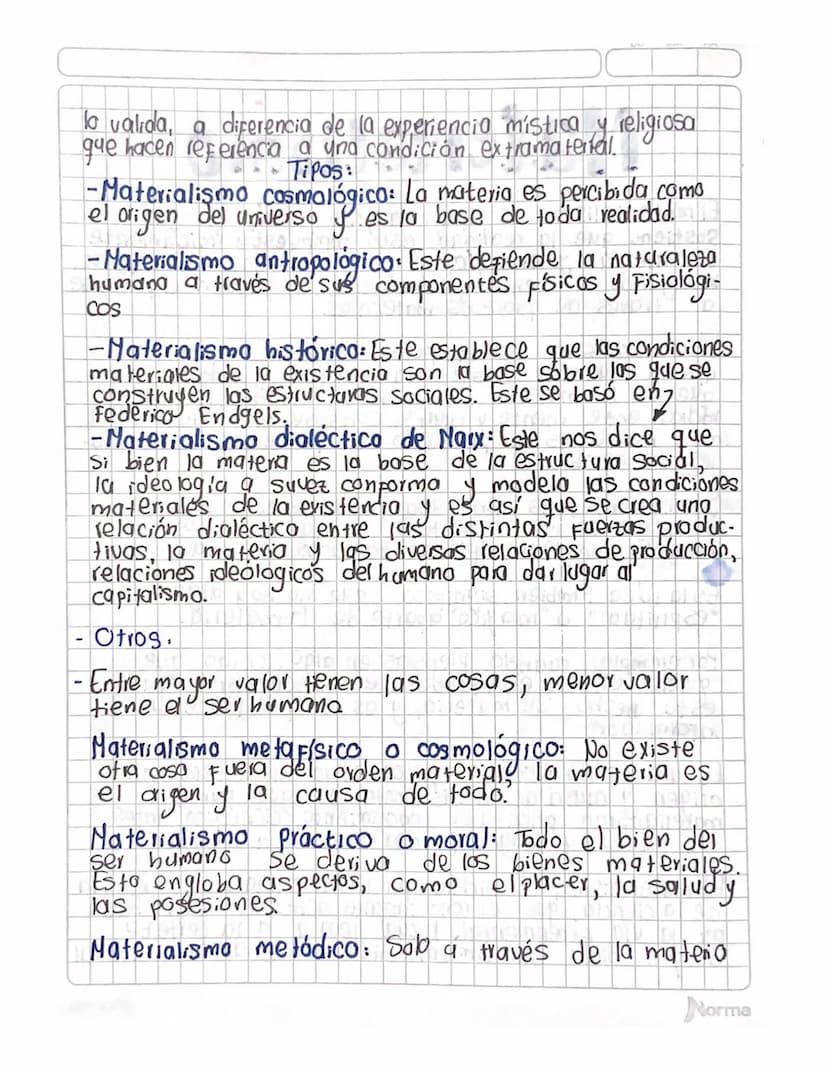 lo valida, a diferencia de la experiencia mística y religiosa
que hacen referencia a una condición extramaterial.
Tipos:
-Materialismo cosmológico: La materia es percibida como
el origen del universo y es la base de toda realidad.
-Materialismo antropológico: Este defiende la naturaleza
humana a través de sus componentes físicos y Fisiológi-
cos
-Materialismo histórico: Este establece que las condiciones
materiales de la existencia son la base sobre las que se
construyen las estructuras sociales. Este se basó en
Federico Endgels.
-Materialismo dialéctico de Marx: Este nos dice que
Si bien la matera es la base de la estructura social,
la ideología a suvez conforma y modela las condiciones
materiales de la existencia y es así que se crea una
relación dialéctico entre las distintas fuerzas produc-
tivas, la materia y las diversas relaciones de producción,
relaciones ideólogicos del humano para dar lugar al
capitalismo.
- Otros.
- Entre mayor valor tienen las cosas, menor valor
tiene el ser humano
Materialismo metafísico o cosmológico: No existe
otra cosa fuera del orden material, la materia es
el origen y la causa de todo.
Materialismo práctico o moral: Todo el bien del
ser humano se deriva de los bienes materiales.
Esto engloba aspectos, como el placer, la salud y
las posesiones.
Materialismo metódico: Solo a través de la materia
Norma